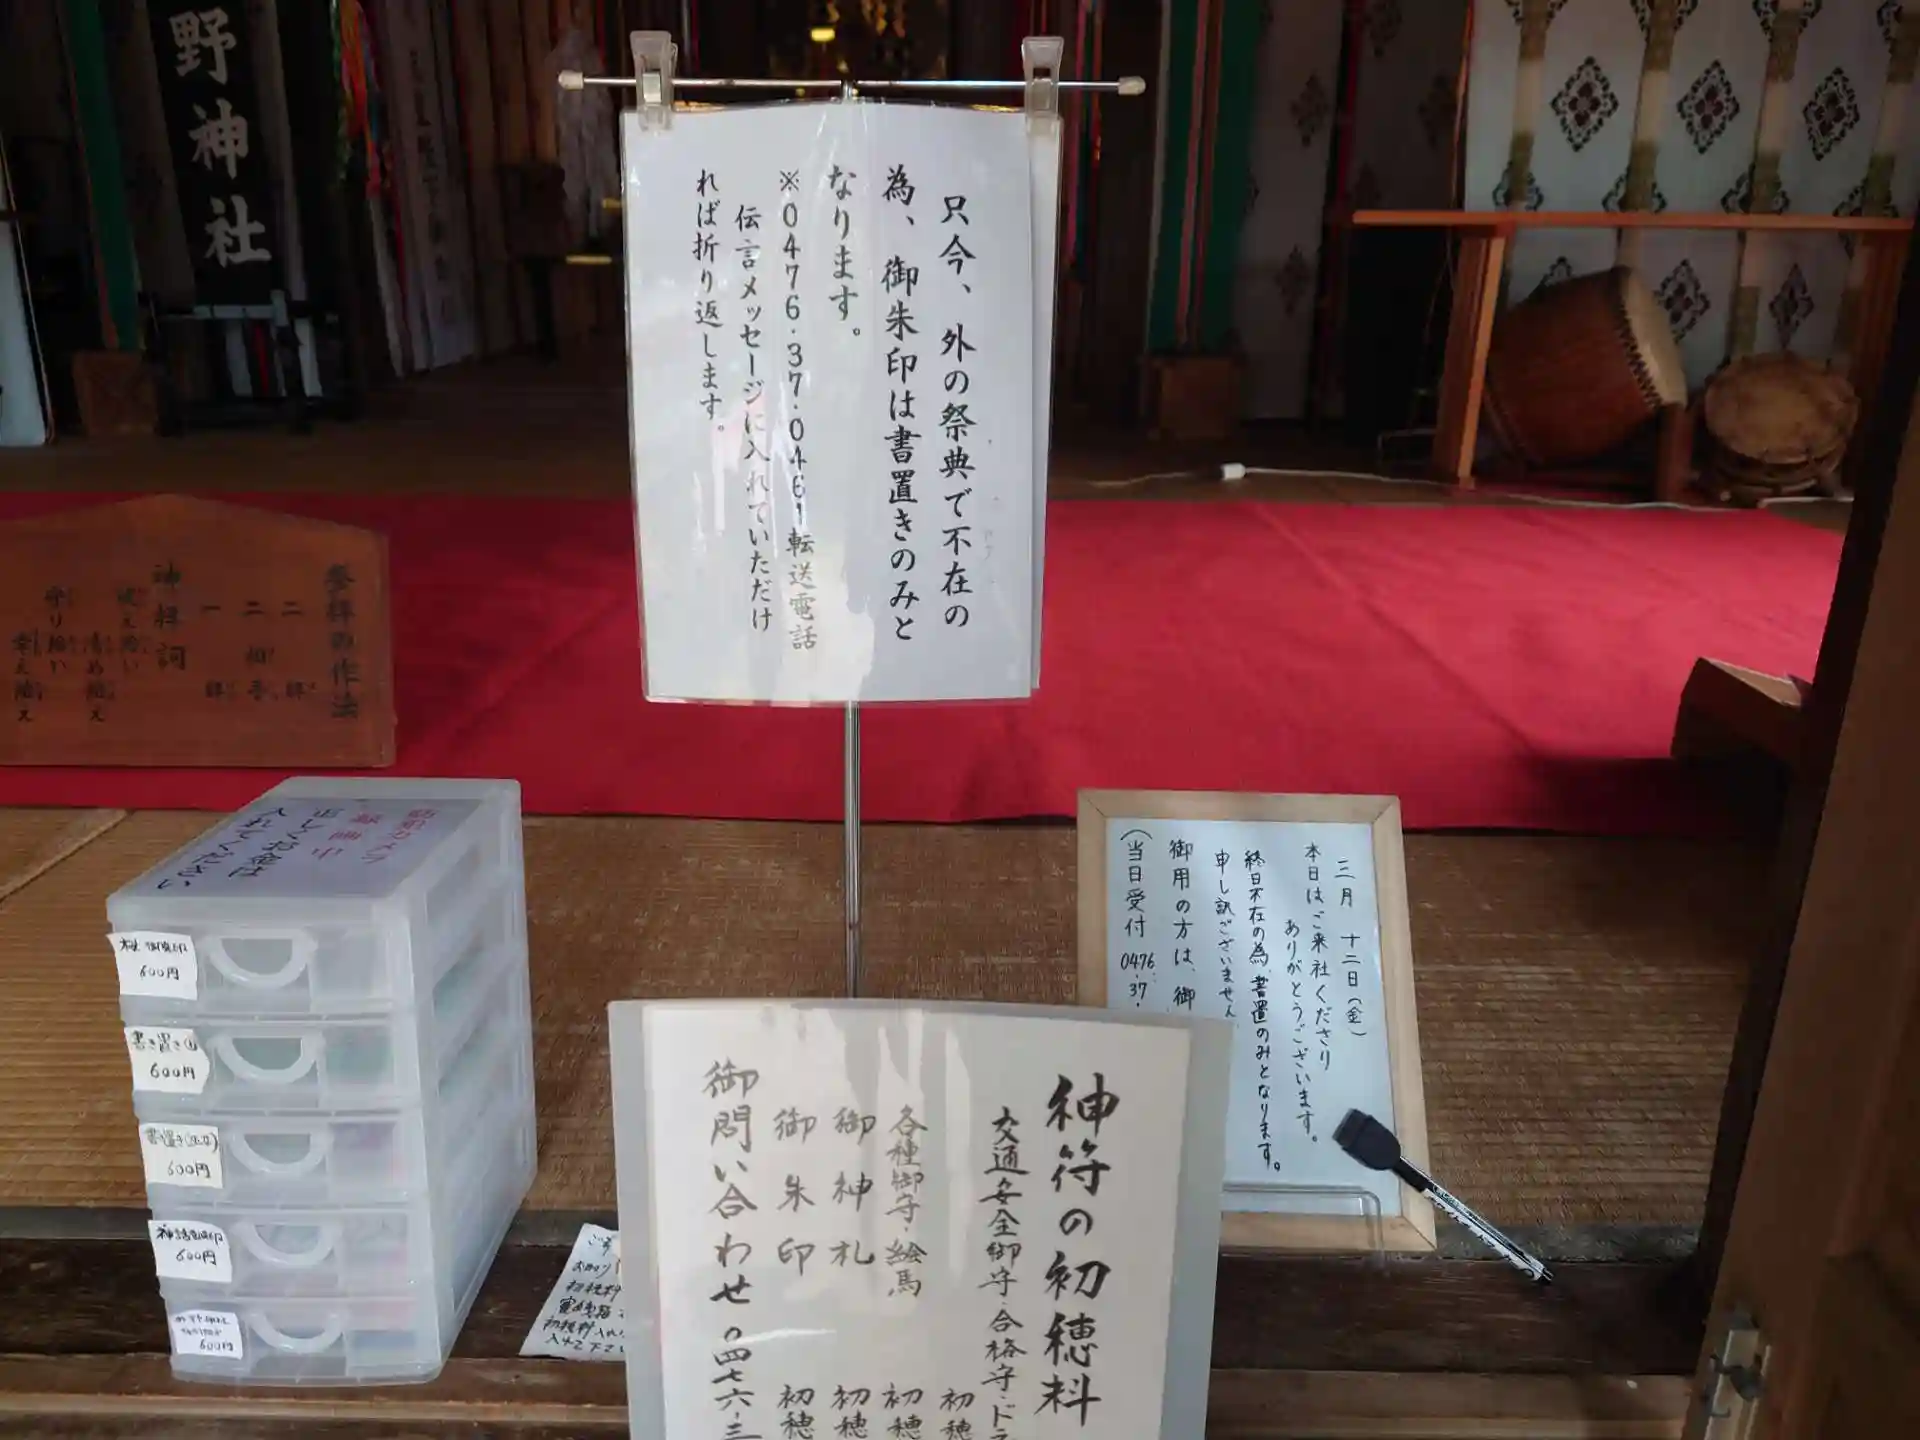 野神社
只今、外の祭典で不在の
為、御朱印は書置きのみと
なります。
※0476・37・0461転送電話
伝言メッセージに入れていただけ
れば折り返します。
参拝の作法
二拝
二拍手
一拝
神拝詞
祓え給い
清め給え
守り給い
幸え給え
正しくお金は
入れてください
600円
書き置き
600円
600円
600円
600円
三月 十二日(金)
本日はご来社くださり
ありがとうございます。
終日不在の為、書置のみとなります。
申し訳ございません
御用の方は、御
(当日受付 0476・37・
神符の初穂料
交通安全御守・合格守・ド
各種御守・絵馬 初穂
御神札 初穂
御朱印 初穂
御問い合わせ 〇四七六・三
初穂